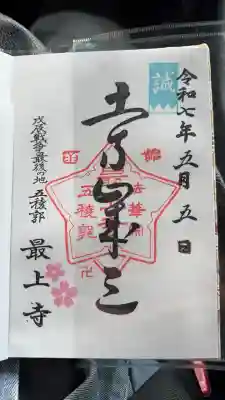 令和七年五月五日
誠
土方歳三
五稜郭
戊辰戦争最後の地 五稜郭
最上寺